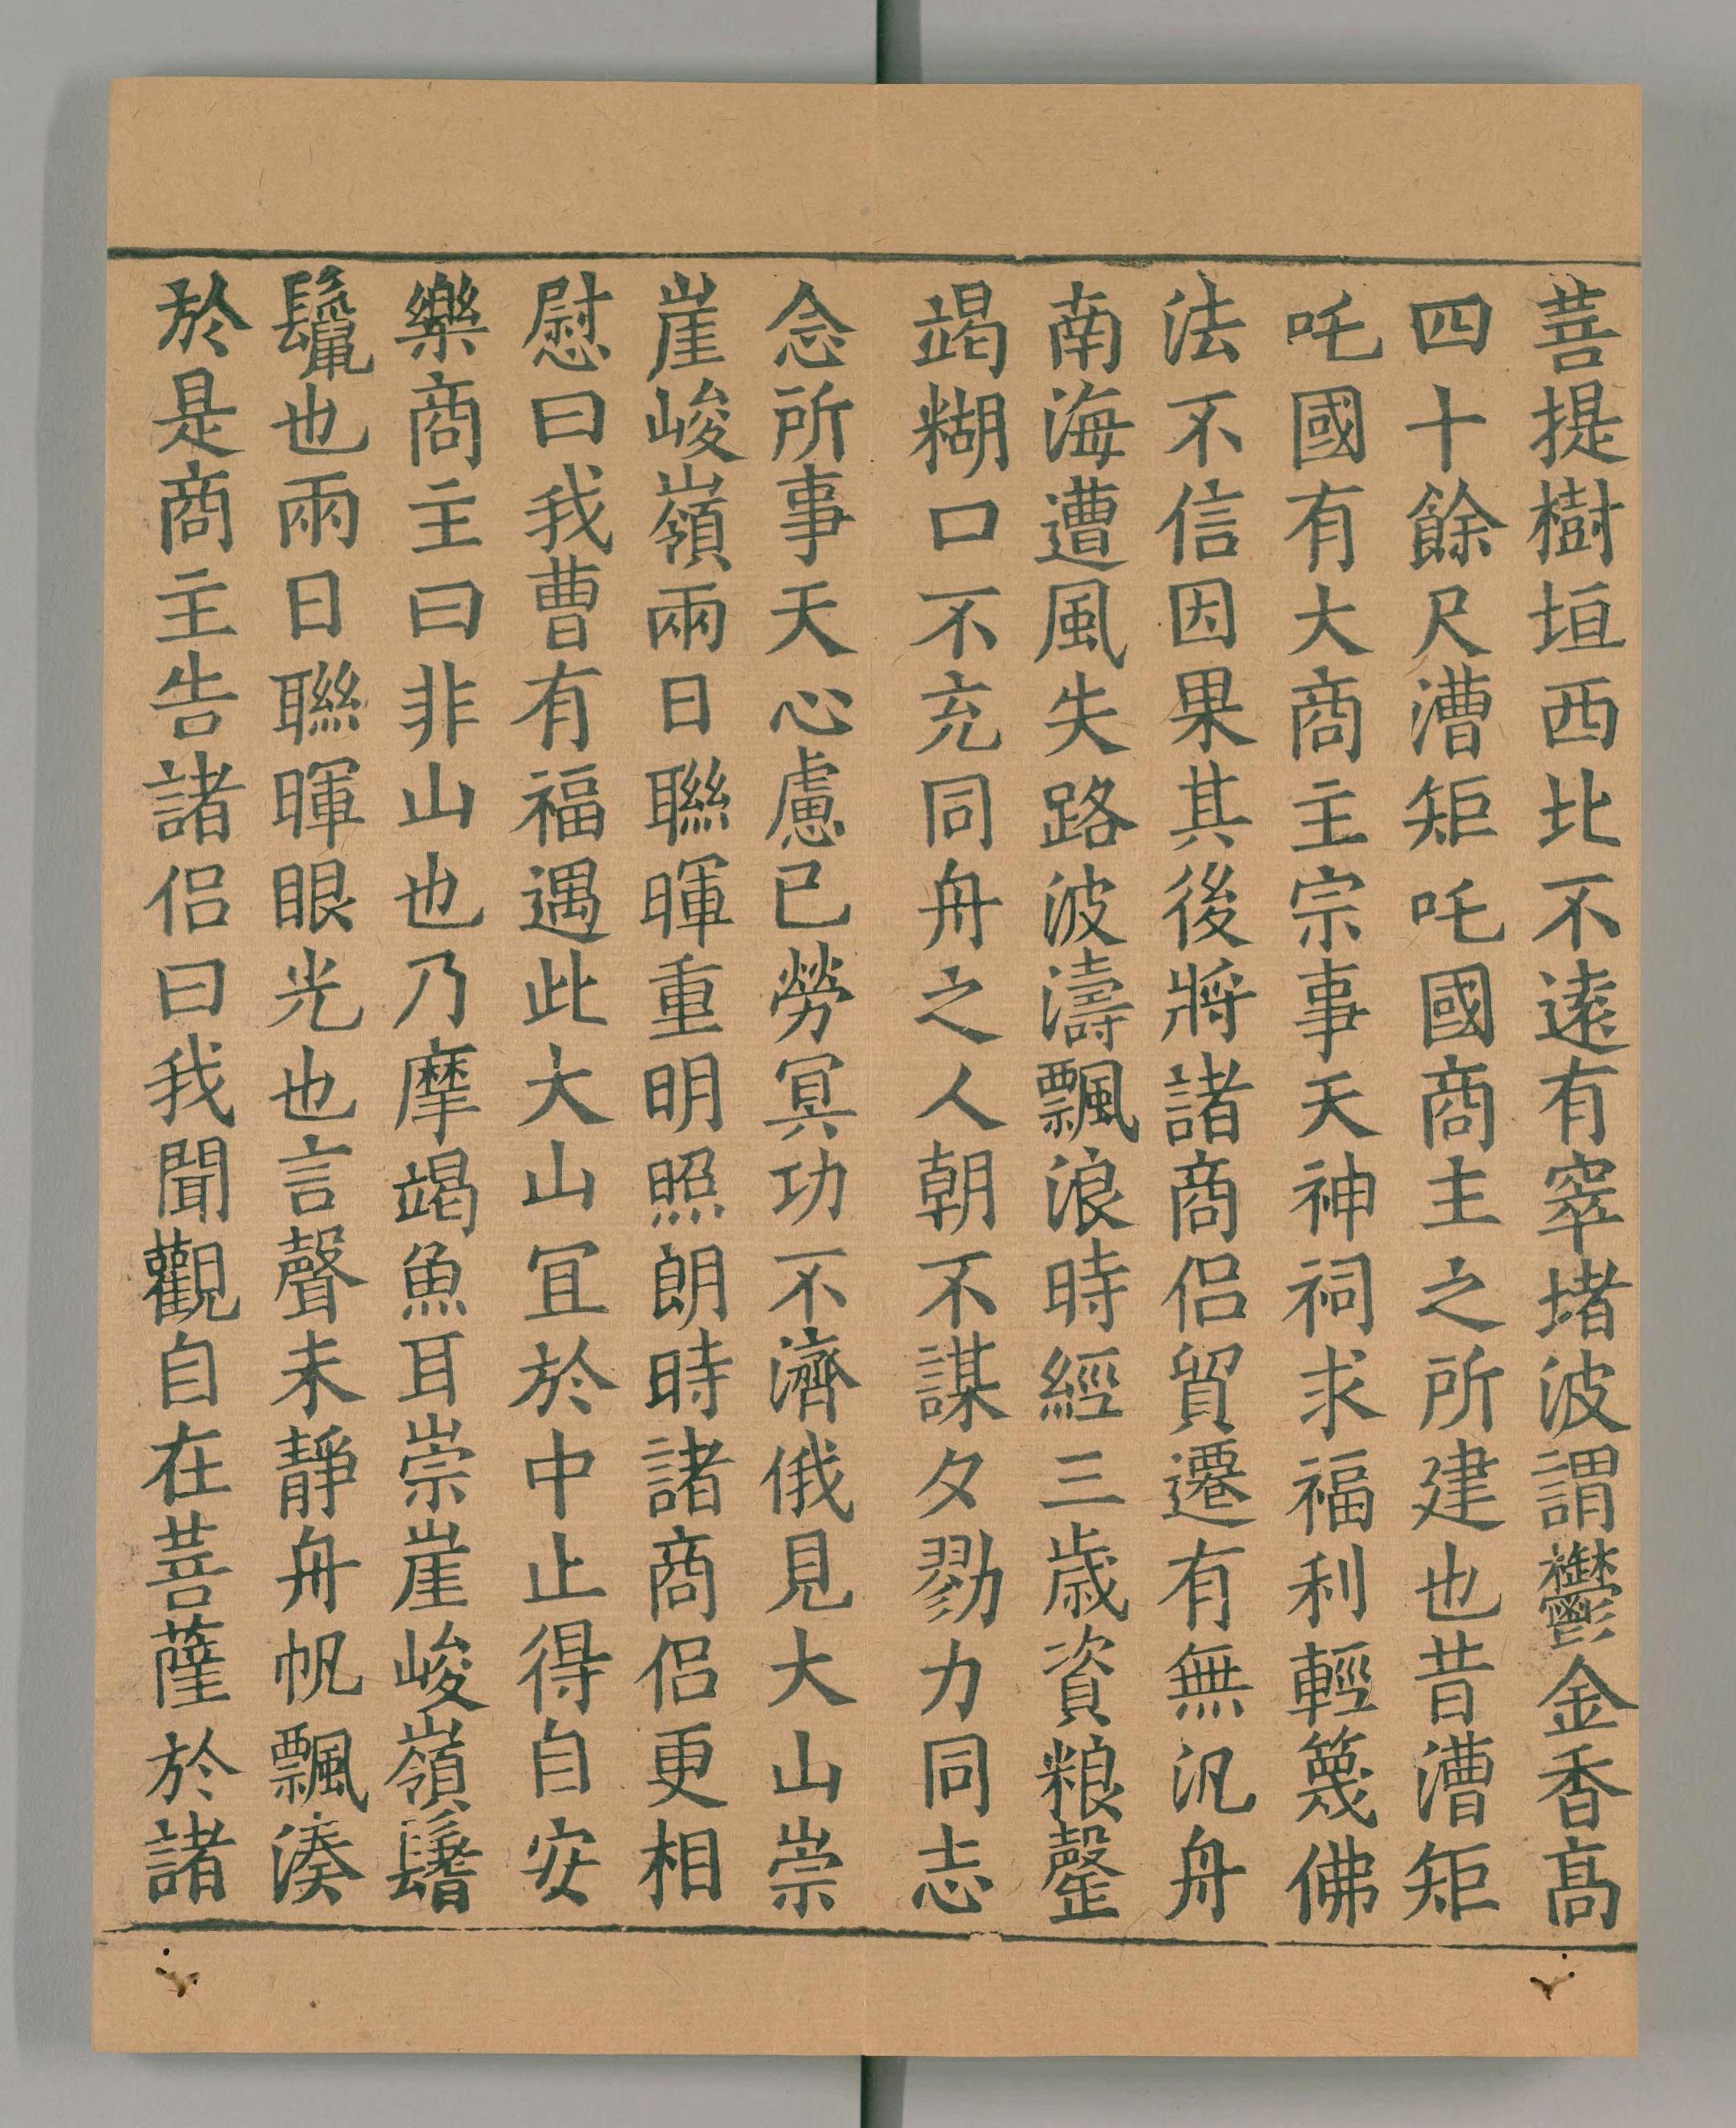 菩提樹垣西北不遠有窣堵波謂鬱金香髙
四十餘尺漕矩吒國商主之所建也昔漕矩
吒國有大商主宗事天神祠求福利輕篾佛
法不信因果其後將諸商侶貿遷有無汎舟
南海遭風失路波濤飄浪時經三歲資粮罄
竭糊口不充同舟之人朝不謀夕勠力同志
念所事天心慮已勞冥功不濟俄見大山崇
崖峻嶺兩日聯暉重明照朗時諸商侶更相
慰曰我曹有福遇此大山宜於中止得自安
樂商主曰非山也乃摩竭魚耳崇崖峻嶺鬐
鬣也兩日聯暉眼光也言聲未靜舟帆飄湊
於是商主告諸侶曰我聞觀自在菩薩於諸